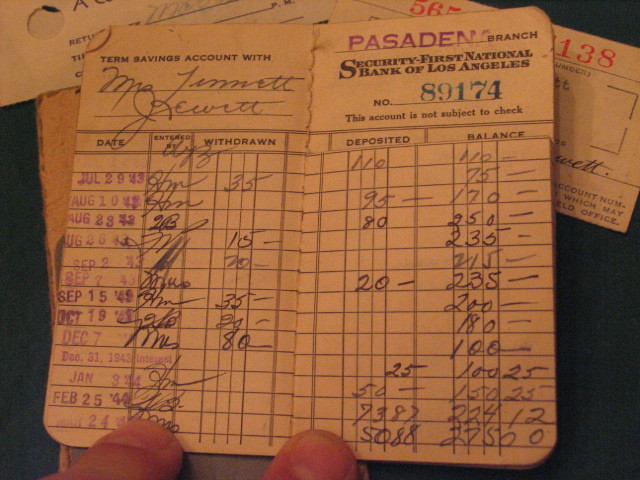 565
138
TERM SAVINGS ACCOUNT WITH
Mrs Jewett
PASADENA BRANCH
SECURITY-FIRST NATIONAL
BANK OF LOS ANGELES
NO. 89174
This account is not subject to check
DATE ENTERED BY WITHDRAWN DEPOSITED BALANCE
110 110 —
JUL 29 '43 35 75 —
AUG 10 '43 95 — 170 —
AUG 23 '43 80 250 —
AUG 26 '43 15 — 235 —
SEP 2 '43 20 — 215 —
SEP 7 '43 20 — 235 —
SEP 15 '43 35 — 200 —
OCT 19 '43 20 — 180 —
DEC 7 80 — 100 —
Dec. 31, 1943 Interest 25 100 25
JAN 3 '44 50 — 150 25
FEB 25 '44 73 87 224 12
24 50 88 275 00
ACCOUNT NUM-
WHICH MAY
FIELD OFFICE.